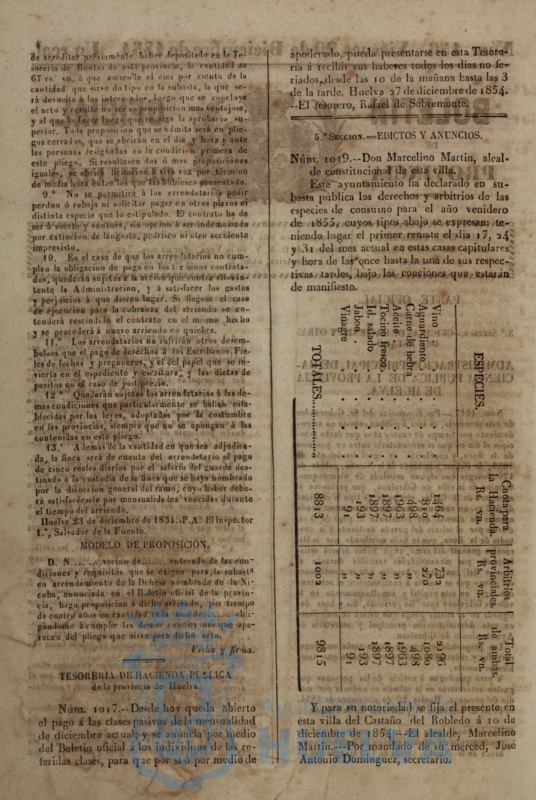 de acreditar préviamente haber depositado en la Te-
sorería de Rentas de esta provincia, la cantidad de
67 rs. vn. á que asciende el diez por ciento de la
cantidad que sirve de tipo en la subasta, la que se-
rá devuelta á los interesados, luego que se concluya
el acto y resulte no ser su proposicion mas ventajosa,
y al que lo fuere luego que recaiga la aprobacion su-
perior. Toda proposicion que se admita será en plie-
gos cerrados, que se abrirán en el dia y hora y ante
las personas designadas en la condicion primera de
este pliego. Si resultasen dos ó mas proposiciones
iguales, se abrirá licitacion á viva voz por término
de media hora entre los que las hubiesen presentado.
9.ª No se permitirá á los arrendatarios pedir
perdon ó rebaja ni solicitar pagar en otros plazos ni
distinta especie que lo estipulado. El contrato ha de
ser á suerte y ventura, sin opcion á ser indemnizado
por extincion de langosta, pedrisco ni otro accidente
imprevisto.
10. En el caso de que los arrendatarios no cum-
plan la obligacion de pago en los términos contrata-
dos, quedarán sujetos á la accion que contra ellos in-
tente la Administracion, y á satisfacer los gastos
y perjuicios á que dieren lugar. Si llegase el caso
de ejecucion para la cobranza del arriendo se en-
tenderá rescindido el contrato en el mismo hecho
y se procederá á nuevo arriendo en quiebra.
11. Los arrendatarios no sufrirán otros desem-
bolsos que el pago de derechos á los Escribanos, Fie-
les de fechas y pregoneros, y el del papel que se in-
vierta en el espediente y escritura, y las dietas de
peritos en el caso de justiprecio.
12.ª Quedarán sujetos los arrendatarios á las de-
mas condiciones que particularmente se hallan esta-
blecidas por las leyes, adoptadas por la costumbre
en las provincias, siempre que no se opongan á las
contenidas en este pliego.
13.ª Ademas de la cantidad en que sea adjudica-
da, la finca será de cuenta del arrendatario el pago
de cinco reales diarios por el salario del guarda des-
tinado á la custodia de la finca que se haya nombrado
por la direccion general del ramo, cuyo haber debe-
rá satisfacérsele por mensualidades vencidas durante
el tiempo del arriendo.
Huelva 23 de diciembre de 1854.-P.A. El inspector
1.º, Salvador de la Fuente.
MODELO DE PROPOSICION.
D. N....... vecino de....... enterado de las con-
diciones y requisitos que se exigen para la subasta
en arrendamiento de la Dehesa nombrada de la Ni-
coba, anunciada en el Boletin oficial de la provin-
cia, hago proposicion á dicho arriendo, por tiempo
de cuatro años en cantidad cada uno de...... obli-
gándome á cumplir las demas condiciones que apa-
recen del pliego que sirve para dicho acto.
Fecha y firma.
TESORERIA DE HACIENDA PUBLICA
de la provincia de Huelva.
Núm. 1017.--Desde hoy queda abierto
el pago á las clases pasivas de la mensualidad
de diciembre actual; y se anuncia por medio
del Boletin oficial á los individuos de las re-
feridas clases, para que por sí ó por medio de
apoderado, pueda presentarse en esta Tesore-
ría á recibir sus haberes todos los dias no fe-
riados, desde las 10 de la mañana hasta las 3
de la tarde. Huelva 27 de diciembre de 1854.
--El tesorero, Rafael de Sobremonte.
5.ª SECCION.=EDICTOS Y ANUNCIOS.
Núm. 1019.--Don Marcelino Martin, alcal-
de constitucional de esta villa.
Este ayuntamiento ha declarado en su-
basta pública los derechos y arbitrios de las
especies de consumo para el año venidero
de 1855, cuyos tipos abajo se expresan, te-
niendo lugar el primer remate el dia 17, 24
y 31 del mes actual en estas casas capitulares
y hora de las once hasta la una de sus respec-
tivas tardes, bajo las condiciones que estarán
de manifiesto.
ESPECIES. Cuota para la Hacienda. Rs. vn. Arbitrios provinciales. Rs. vn. Total de ambas. Rs. vn.
Vino 1464 732 2196
Aguardiente 810 270 1080
Carne de hebra 498 " 498
Aceite 1963 " 1963
Tocino fresco 1897 " 1897
Id. salado 1897 " 1897
Jabon 193 " 193
Vinagre 91 " 91
TOTALES 8813 1002 9815
Y para su notoriedad se fija el presente en
esta villa del Castaño del Robledo á 10 de
diciembre de 1854.--El alcalde, Marcelino
Martin.---Por mandado de su merced, José
Antonio Dominguez, secretario.